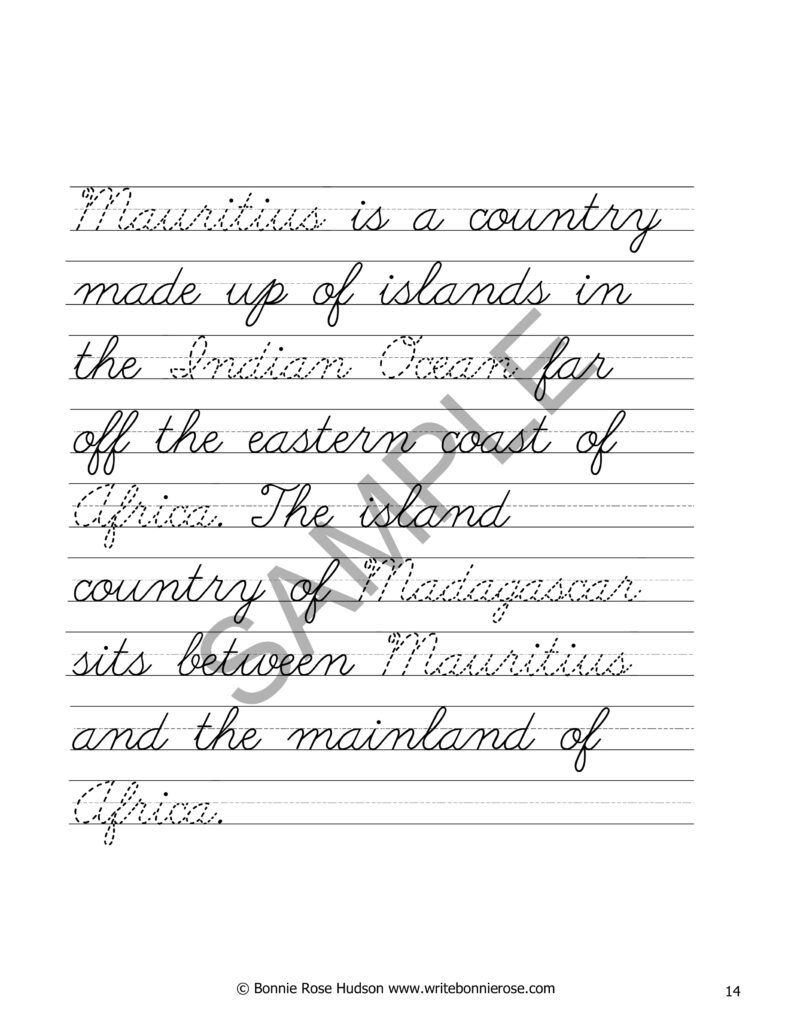 Mauritius is a country
made up of islands in
the Indian Ocean far
off the eastern coast of
Africa. The island
country of Madagascar
sits between Mauritius
and the mainland of
Africa.
SAMPLE
© Bonnie Rose Hudson www.writebonnierose.com
14